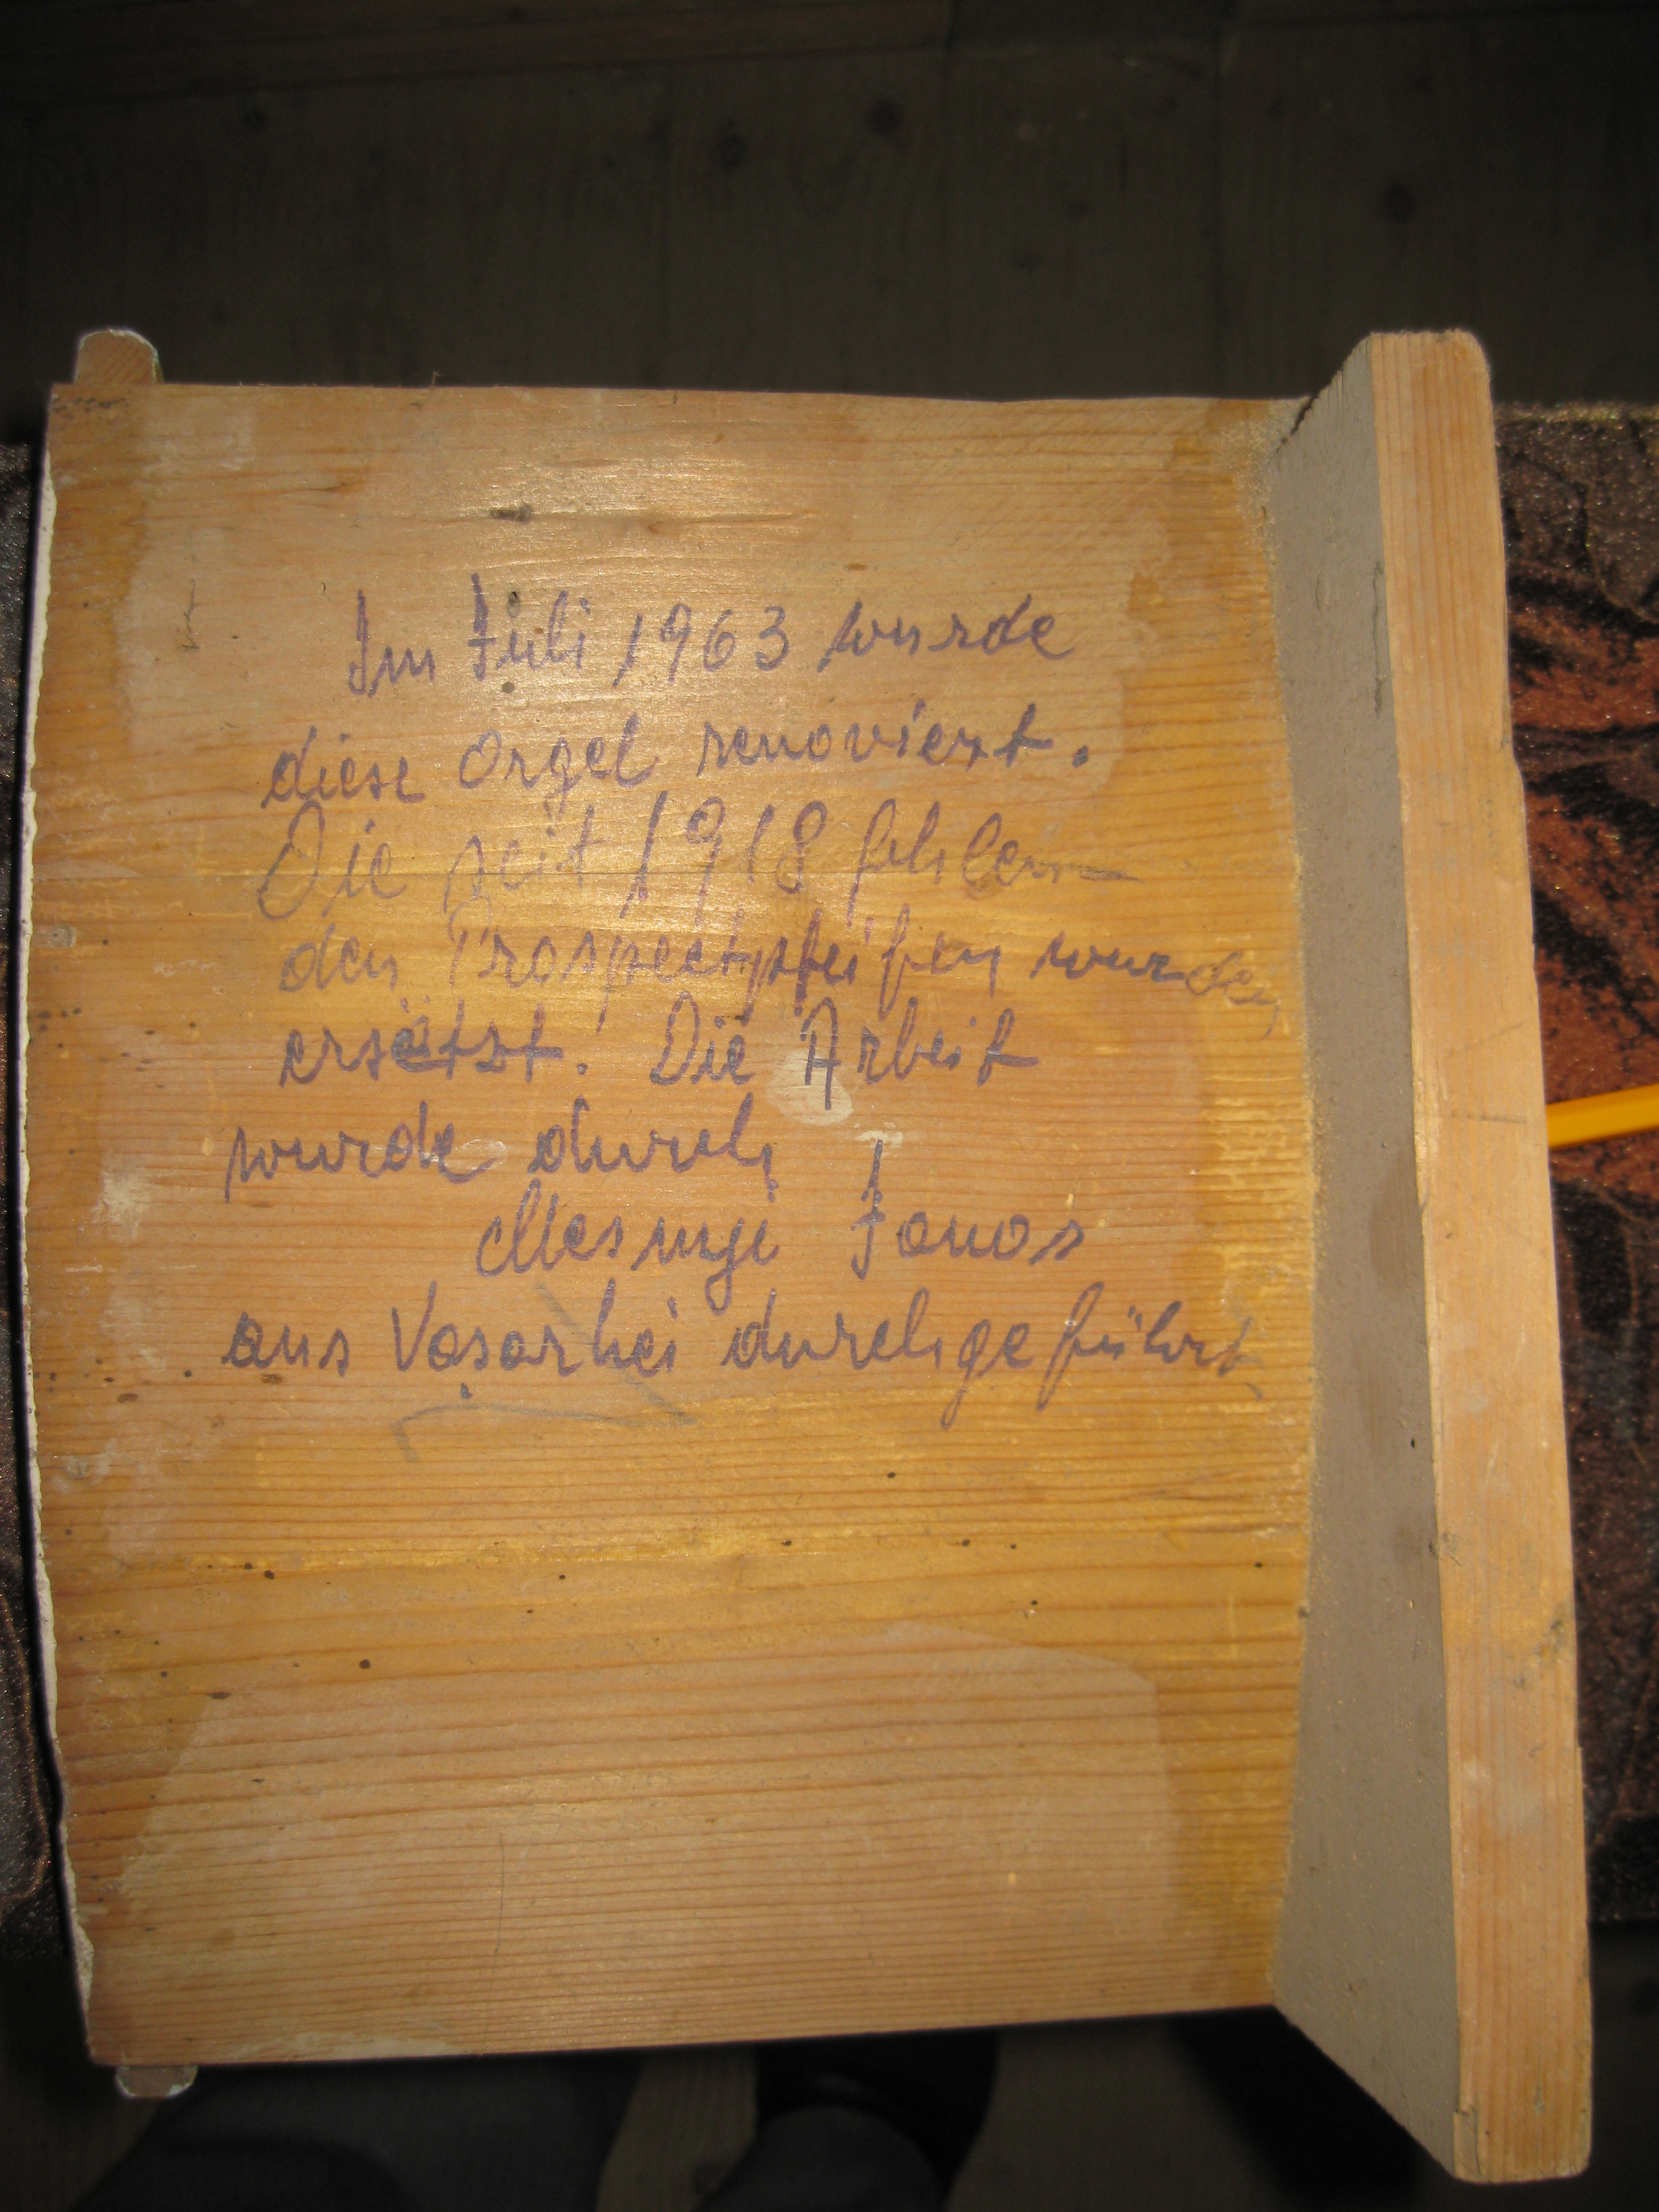 Im Juli 1963 wurde
diese Orgel renoviert.
Die seit 1918 fehlen
den Prospectpfeifen wurden
ersätzt. Die Arbeit
wurde durch
Mesnyi Janos
aus Vasarhei durchgeführt